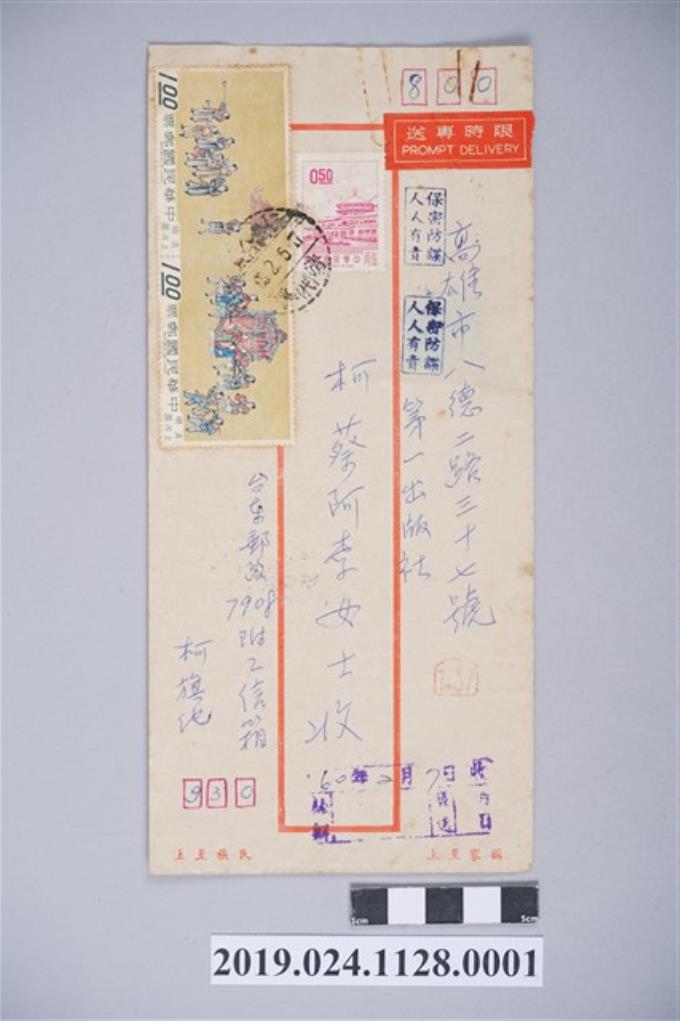 800
限時專送
PROMPT DELIVERY
保密防諜
人人有責
保密防諜
人人有責
高雄市八德二路三十七號
第一出版社
柯蔡阿李女士收
台東郵政7908附乙信箱
柯旗化
930
1.00
中華民國郵票
1.00
中華民國郵票
0.50
60年2月7日
國家至上
民族至上
5cm
5cm
2019.024.1128.0001